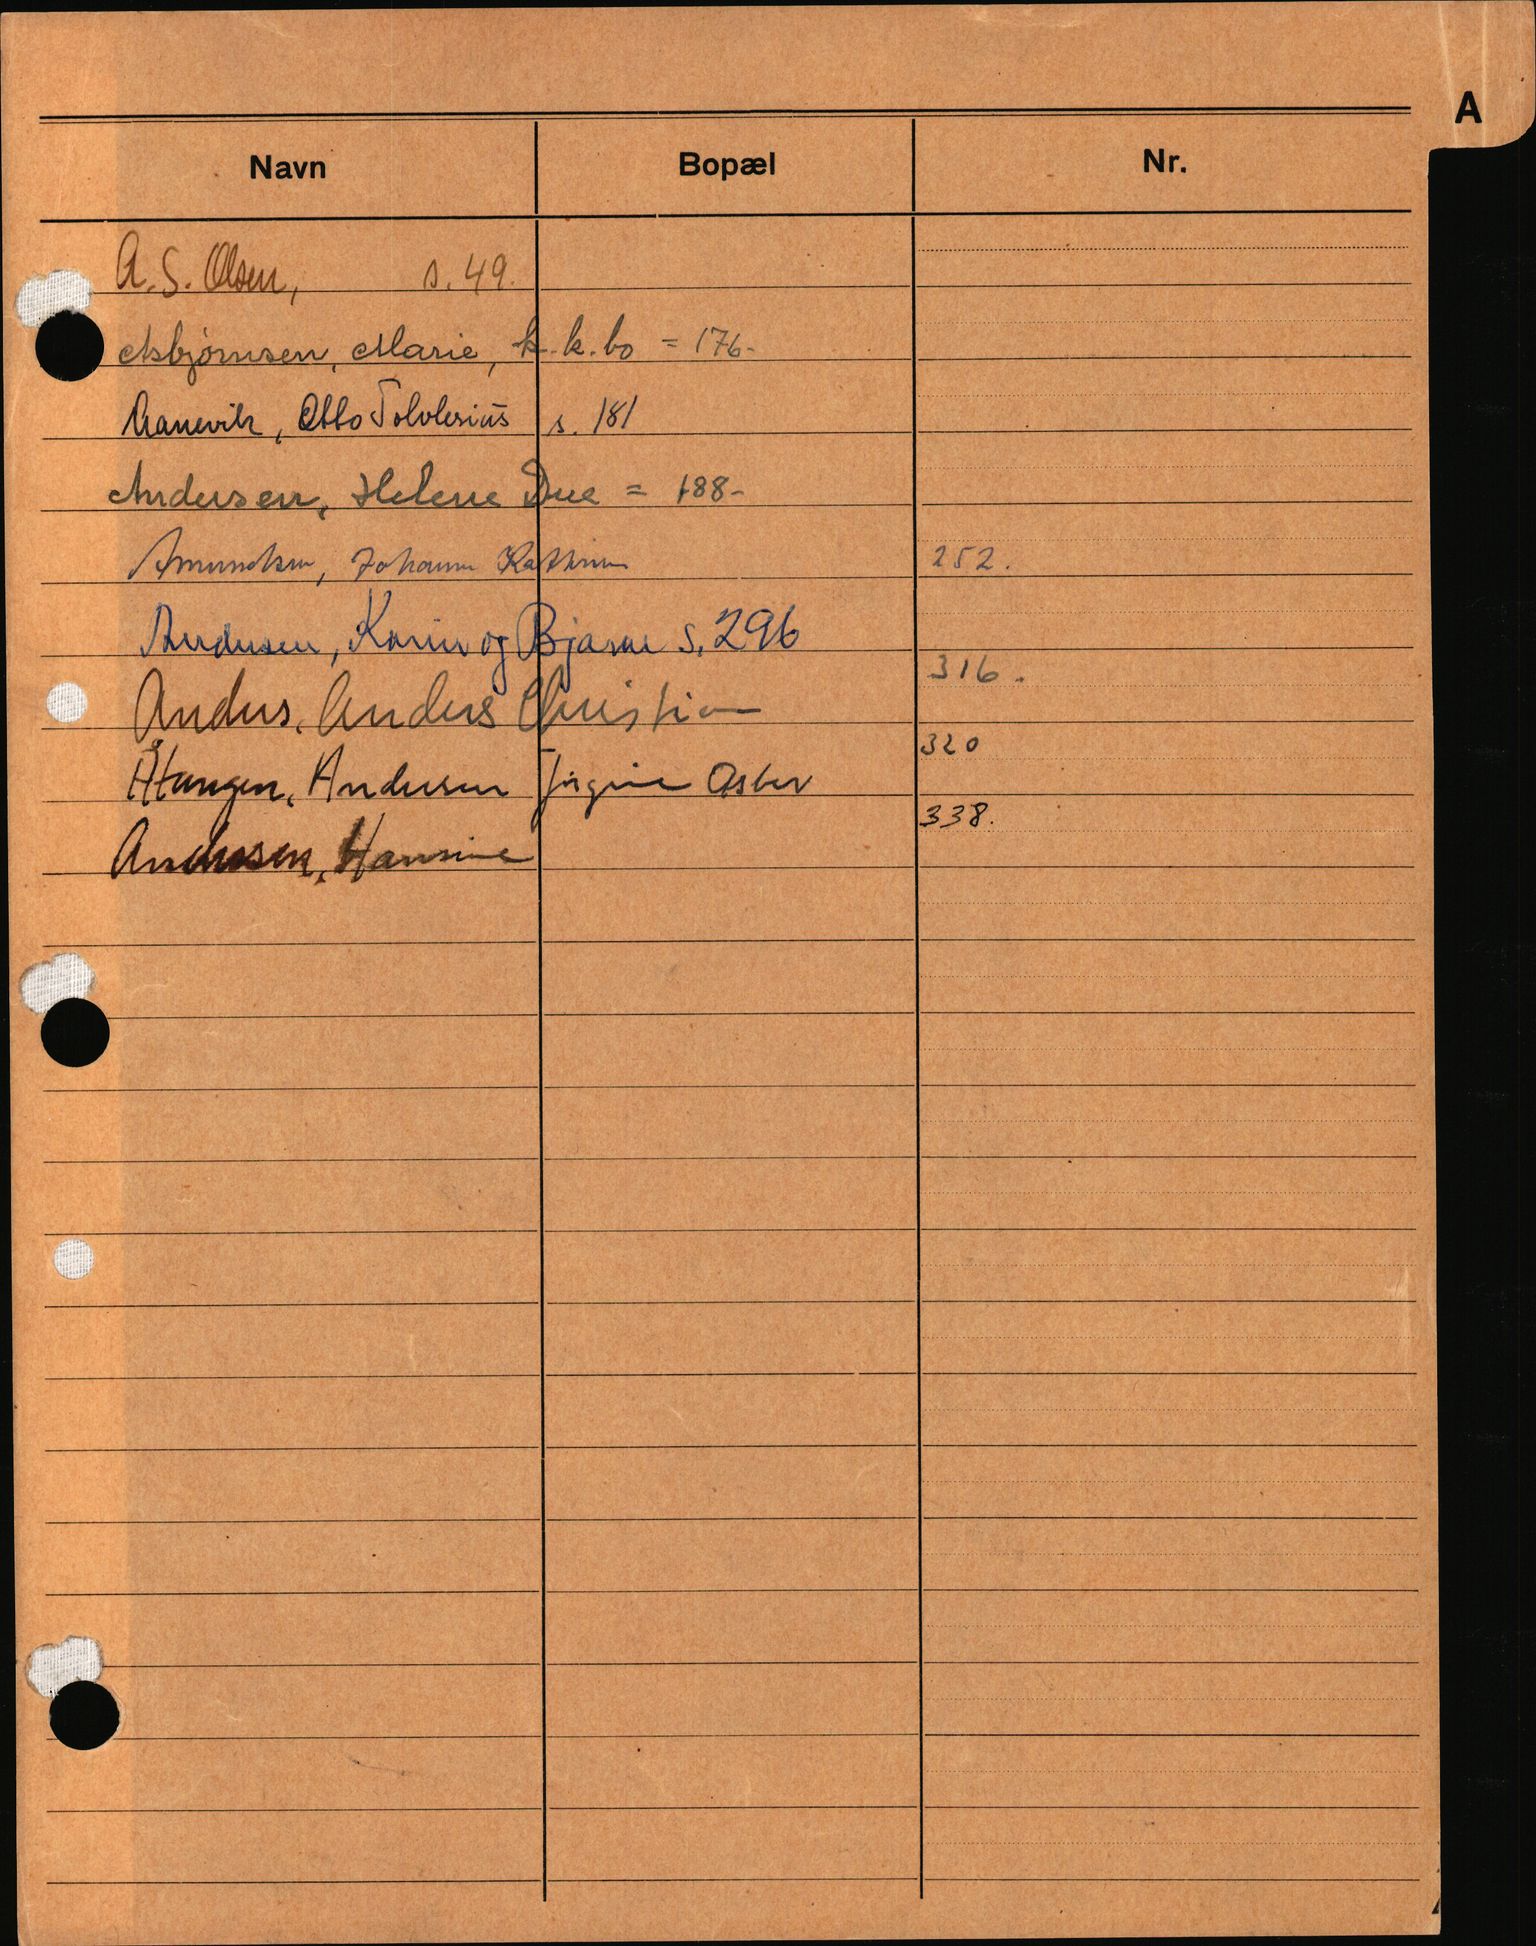 A
Navn Bopæl Nr.
A. S. Olsen, s. 49.
Asbjørnsen, Marie, k.k.bo = 176-
Aanevik, Otto s. 181
Andersen, Helene Due = 188-
Amundsen, Johanne Kathrine 252.
Andersen, Karin og Bjarne s. 296
Anders, Anders Christian 316.
Åtangen, Andersen Jørgine Asber 320
Andersen, Hansine 338.